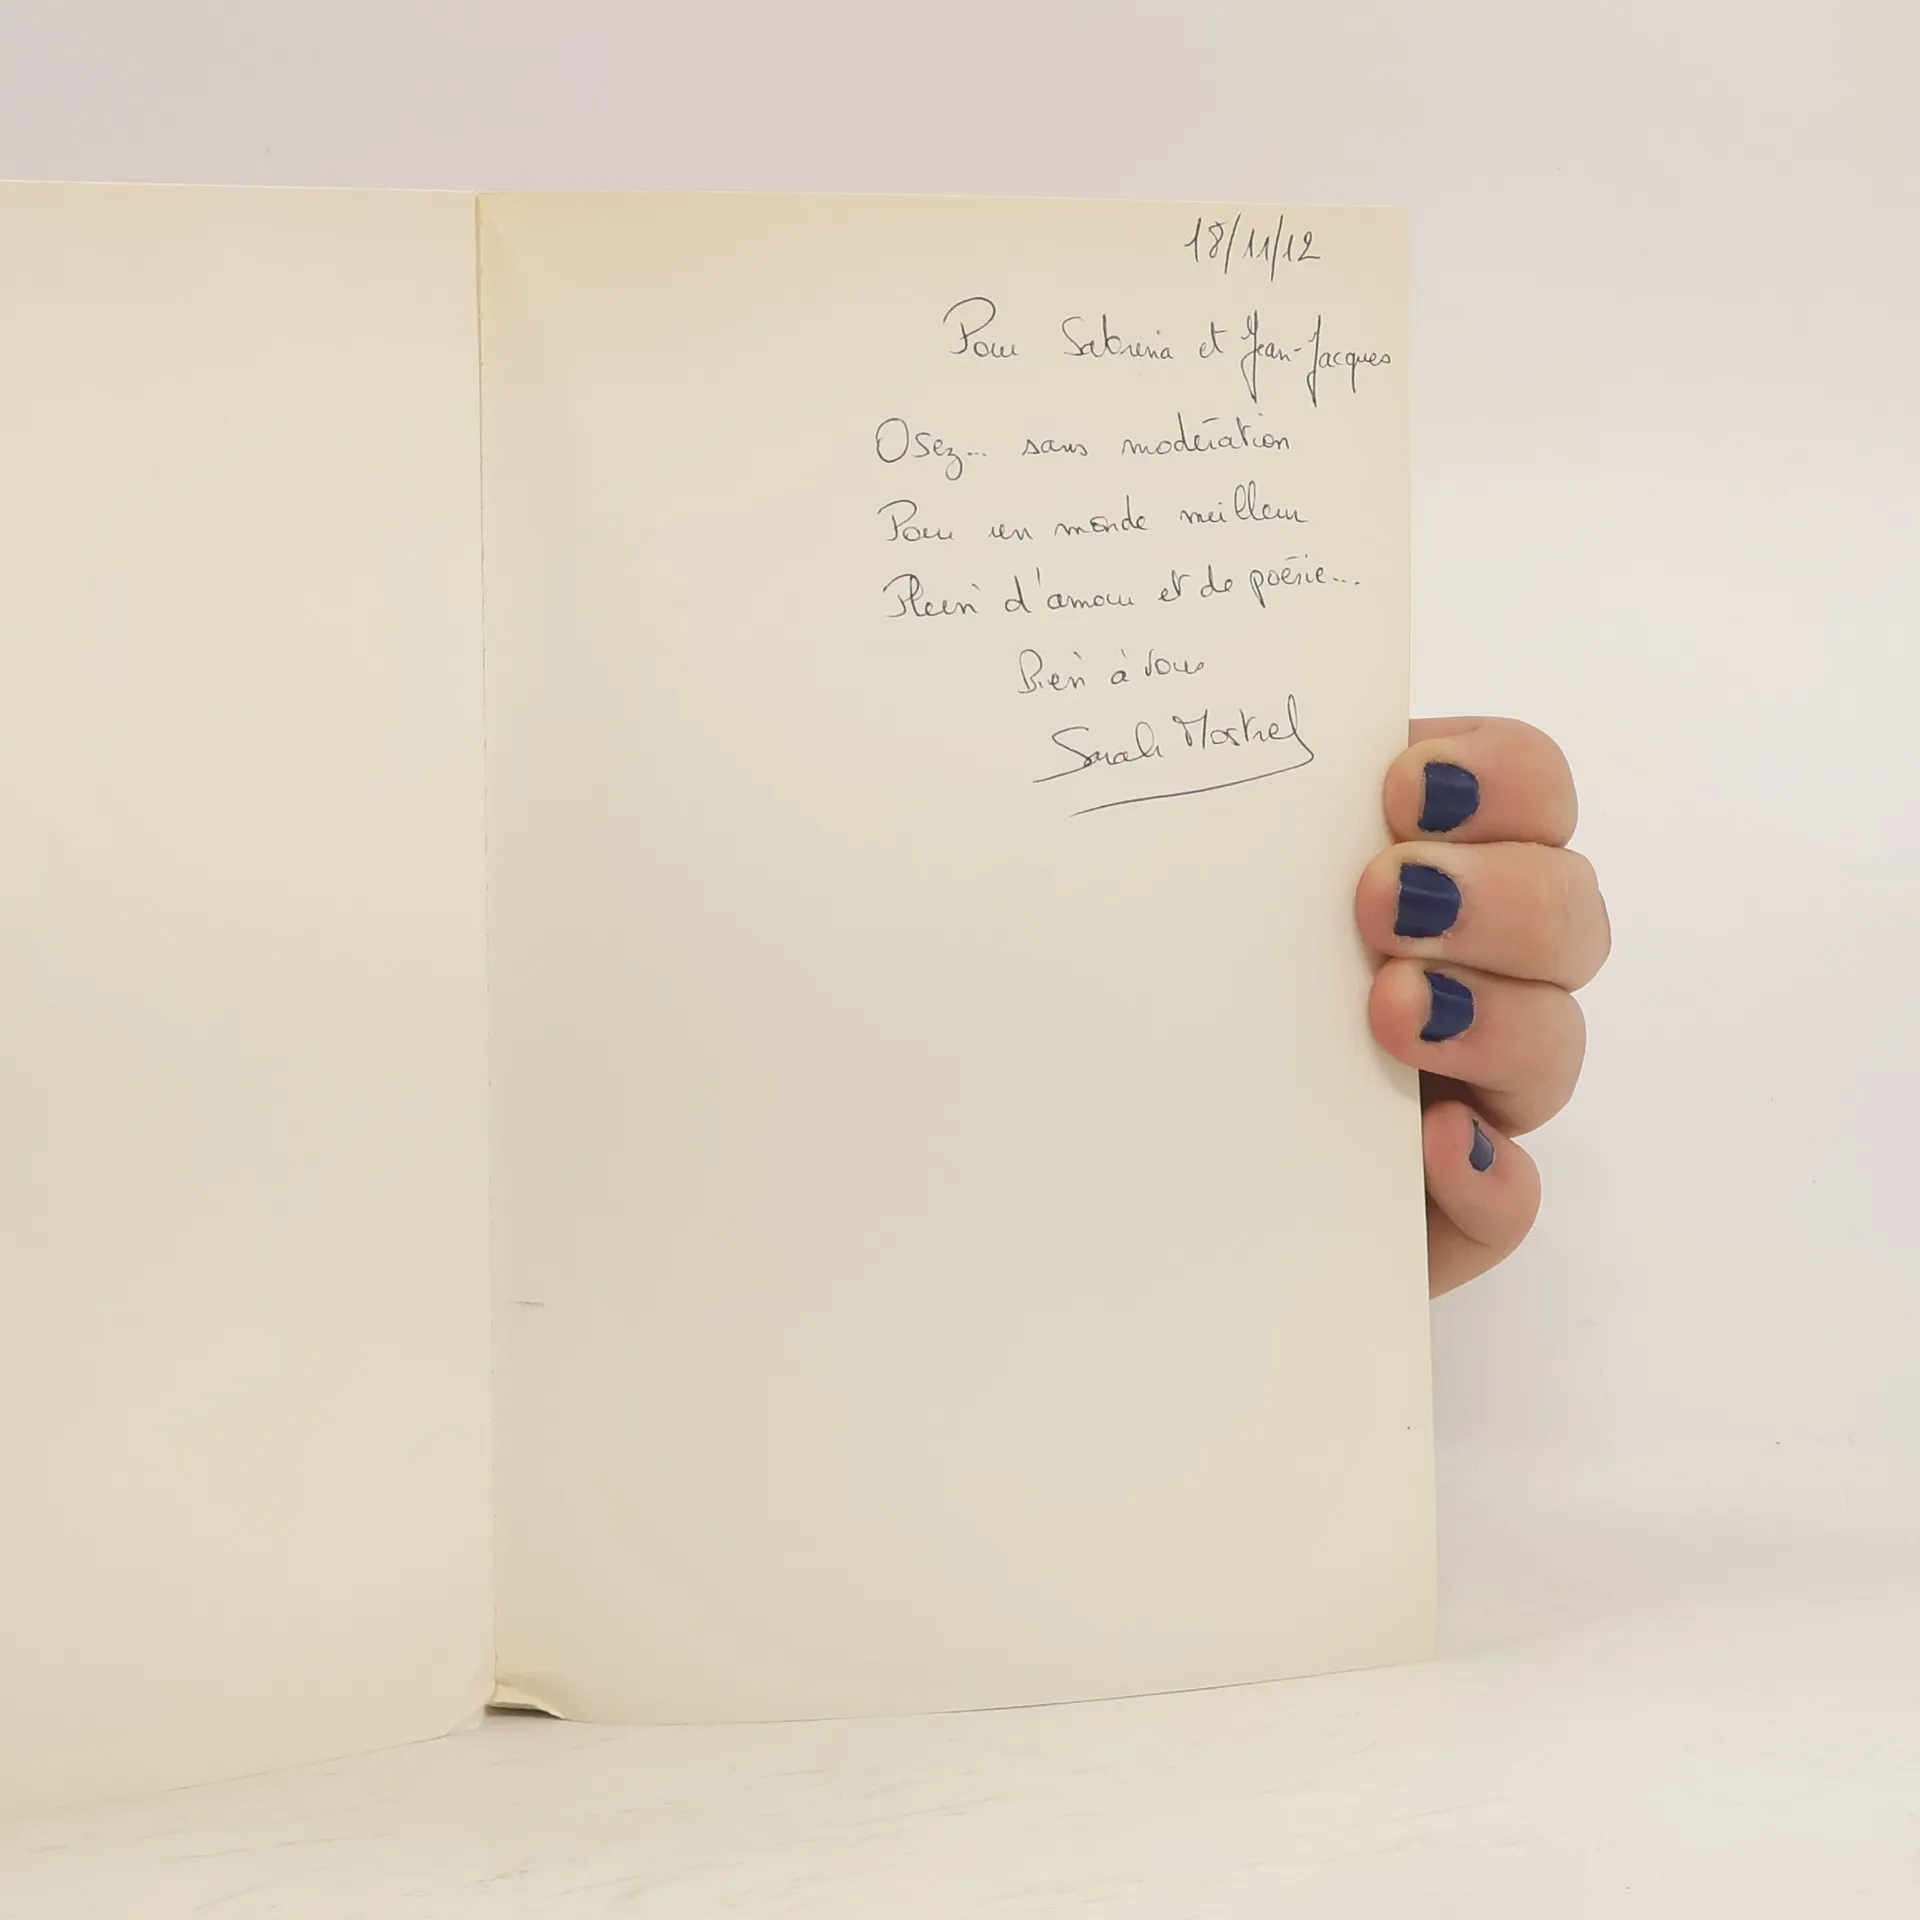 18/11/12
Pour Sabrina et Jean-Jacques
Osez... sans modération
Pour un monde meilleur
Plein d'amour et de poésie...
Bien à vous
Sarah Mostrel